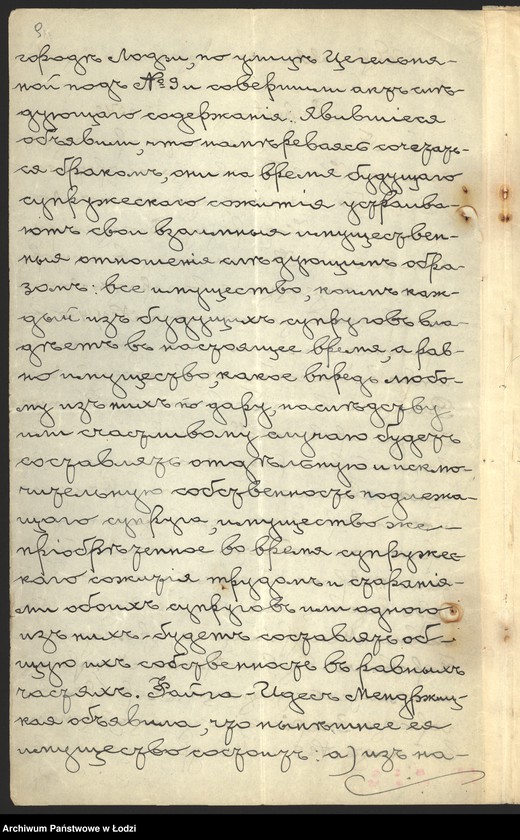 городѣ Лодзи, по улицѣ Цегельня-
ной подъ № 9 и совершили актъ слѣ-
дующаго содержанія. Явившіеся
объявили, что намѣреваясь сочетать-
ся бракомъ, они на время будущаго
супружескаго сожитія устраива-
ютъ свои взаимныя имуществен-
ныя отношенія слѣдующимъ обра-
зомъ: все имущество, коимъ каж-
дый изъ будущихъ супруговъ вла-
дѣетъ въ настоящее время, а рав-
но имущество, какое впредь любо-
му изъ нихъ по дару, наслѣдству
или счастливому случаю будетъ
составлять отдѣльную и исклю-
чительную собственность подлежа-
щаго супруга, имущество же
пріобрѣтенное во время супружес
каго сожитія трудомъ и старанія-
ми обоихъ супруговъ или одного
изъ нихъ - будетъ составлять об-
щую ихъ собственность въ равныхъ
частяхъ. Файга - Идесъ Менджиц-
кая объявила, что нынѣшнее ея
имущество состоитъ: а) изъ на-
Archiwum Państwowe w Łodzi